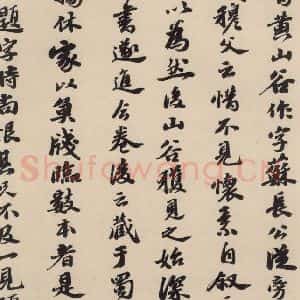 黃山谷作字蘇長公從旁
穆父云惜不見懷素自叙
以為然後山谷獲見之始深
書卷後云藏于蜀
休家以魚牋臨數本者是
題字時尚恨其不及一見
Shufawang.Cn